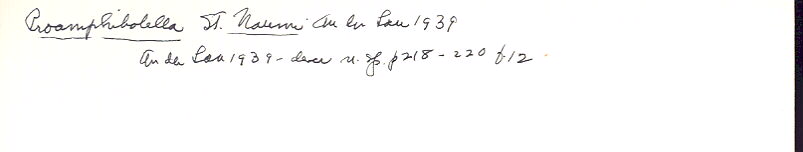 Proamphibolella St. Naumi An der Lan 1939
An der Lan 1939 - desc n. sp. p 218 - 220 f 12